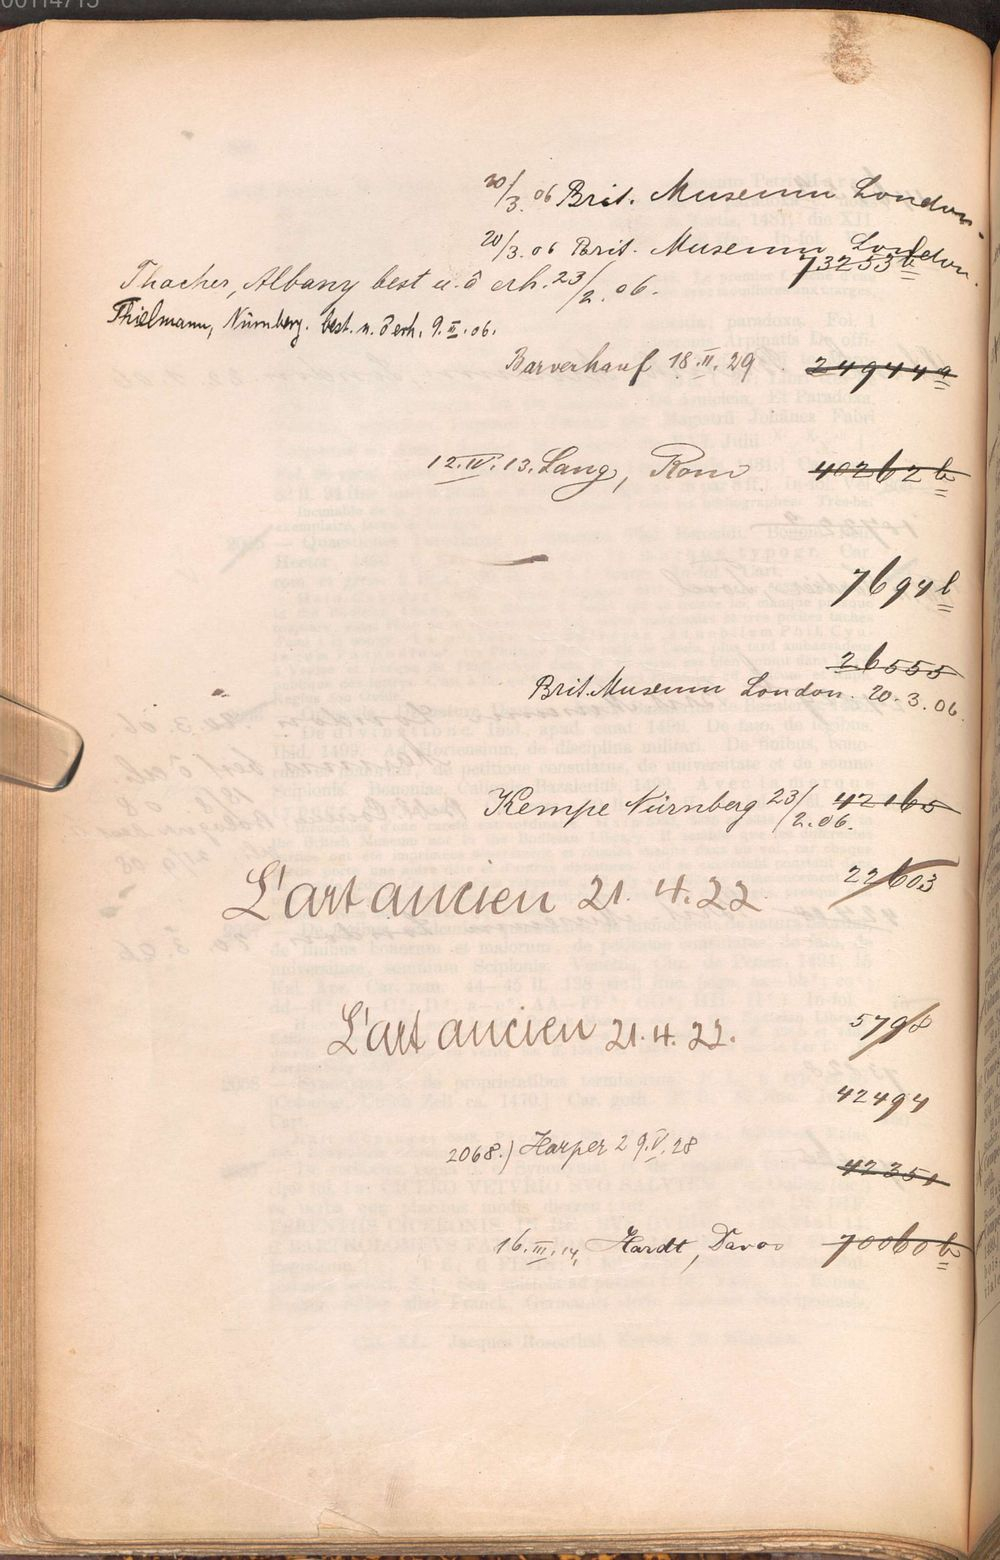 00114715
20/3. 06 Brit. Museum London.
20/3. 06 Brit. Museum London.
73253b
Thacher, Albany best u. ö erh. 23/2. 06.
Thielmann, Nürnberg. best. u. ö erh. 9.II.06.
Barverkauf 18.II.29 24944a
12.IV.13. Lang, Rom 40262b
7694b
26555
Brit. Museum London. 20.3.06.
Kempe Nürnberg 23/2.06. 42165
L'art ancien 21.4.22 22603
L'art ancien 21.4.22. 5798
42494
2068.) Harper 29.V.28
42351
16.III.14, Hardt, Davos 70060b